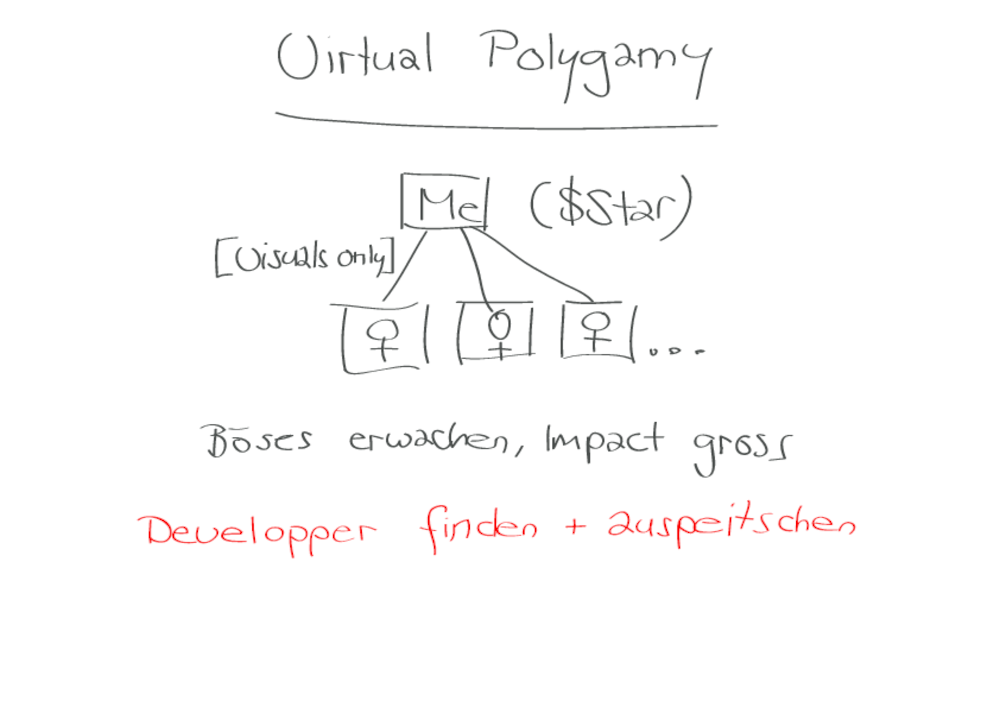 Virtual Polygamy
Me ($Star)
[Visuals only]
...
Böses erwachen, Impact gross
Developper finden + auspeitschen